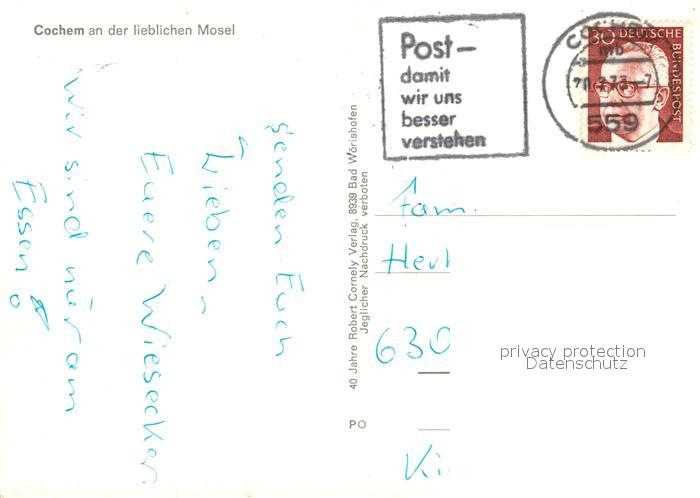 Cochem an der lieblichen Mosel
senden Euch
Lieben
Euere Wiesecker
Wir sind nur am
Essen!
40 Jahre Robert Cornely Verlag, 8939 Bad Wörishofen
Jeglicher Nachdruck verboten
Post-
damit
wir uns
besser
verstehen
mb
559
30 DEUTSCHE
BUNDESPOST
Fam.
630
privacy protection
Datenschutz
PO